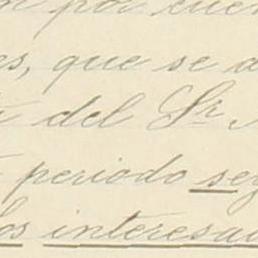 por cuen
es, que se a
del Sr.
periodo seg
los interesad